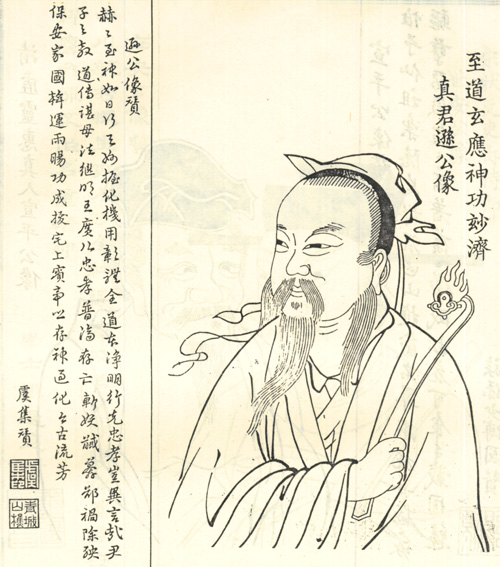 至道玄應神功妙濟
真君遜公像
遜公像贊
赫赫至神如日行天妙握化機用彰證全道本淨明行先忠孝豈無言哉
子之教道傳諶母法繼明王廣以忠孝普濟存亡斬妖馘 禍除殃
保安家國斡運雨暘功成拔宅上賓帝 存神過化 古流芳
虞集贊
青城山樵